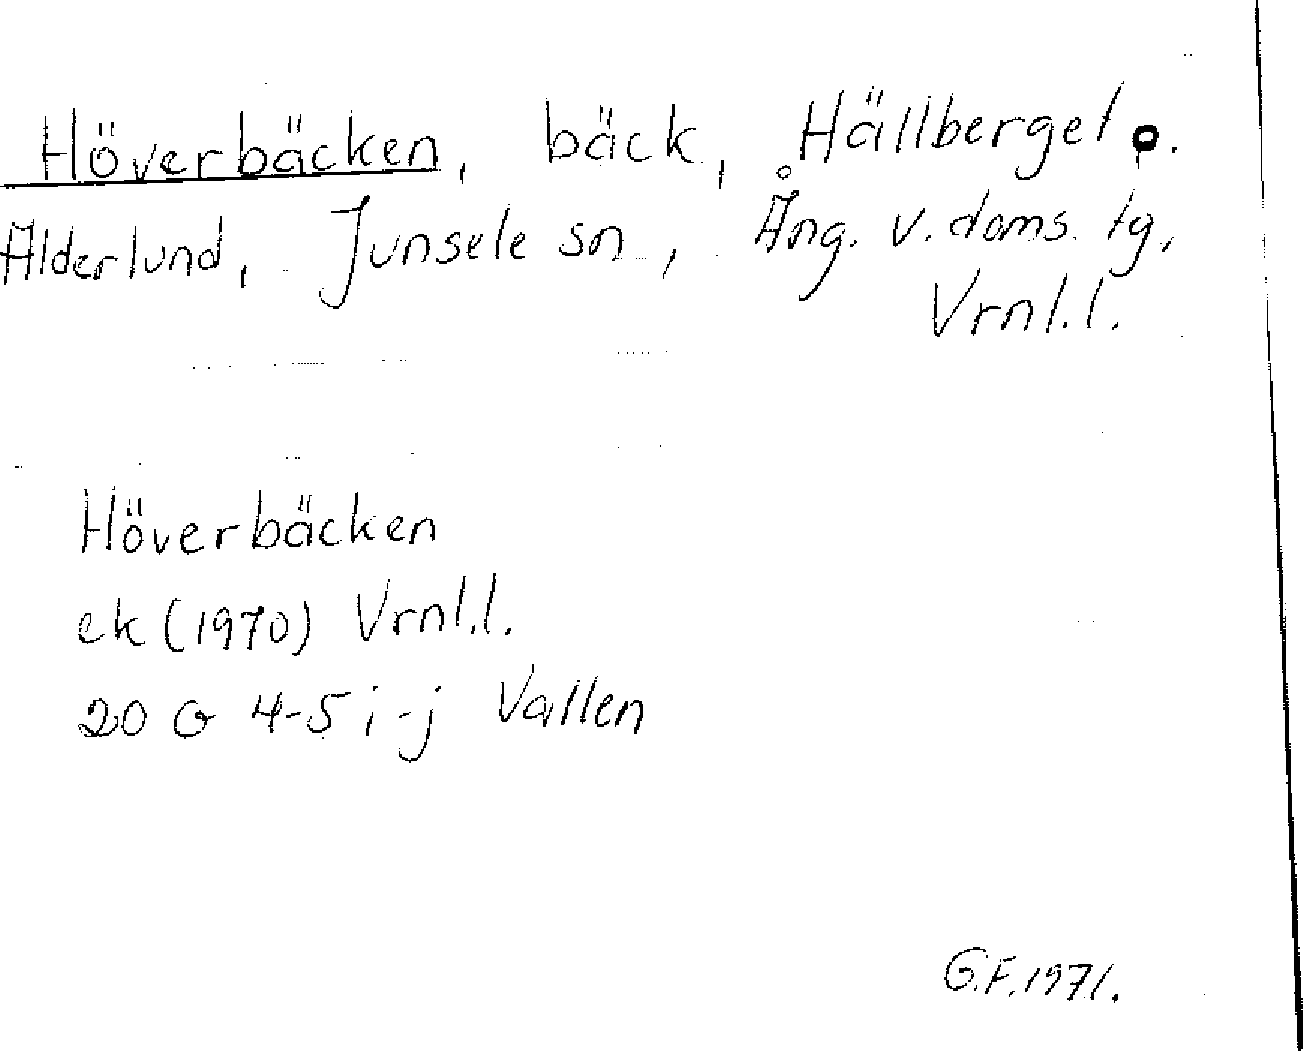 Höverbäcken, bäck, Hällberget o.
Alderlund, Junsele sn, Ång. v. doms. tg,
Vrnl.l.
Höverbäcken
ek (1970) Vrnl.l.
20 G 4-5 i-j Vallen
G.F. 1971.